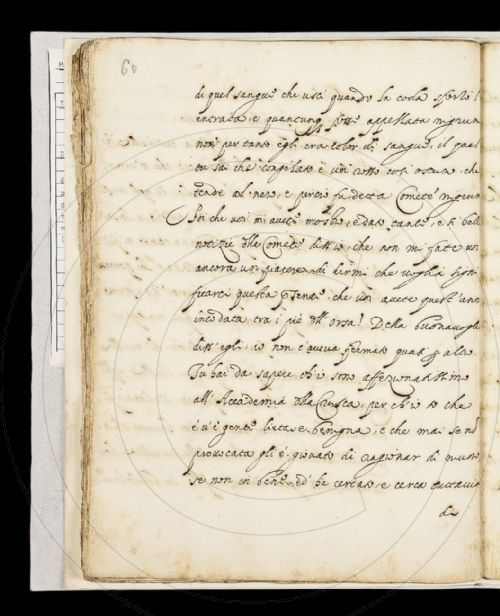 60
di quel sangue che uscì quando la coda sferzò l
entrata, e quantunq fosse appellata nigrum
non per tanto egli era color di sangue, il qual
tu sai che congelato è un rosso così oscuro, che
tende al nero, e perciò fu detta Comete nigrum
Poi che voi m'avete mostro, e dato tante, e sì belle
notizie delle Comete diss'io, che non mi fate voi
ancora un piacere di dirmi che voglia signi
ficarci questa presente, che voi avete quest'anno
tra i piè dell'orsa? Della buonavoglia
diss'egli, io non l'aveva
Tu hai da sapere ch'io sono affezionatissimo
all'Accademia della Crusca, per ch'io so che
e v'è gente lieta e benigna, e che mai se no
provocata gli è giovato di ragionar di
se non in bene, ed ha cercato, e cerca tuttavia
di